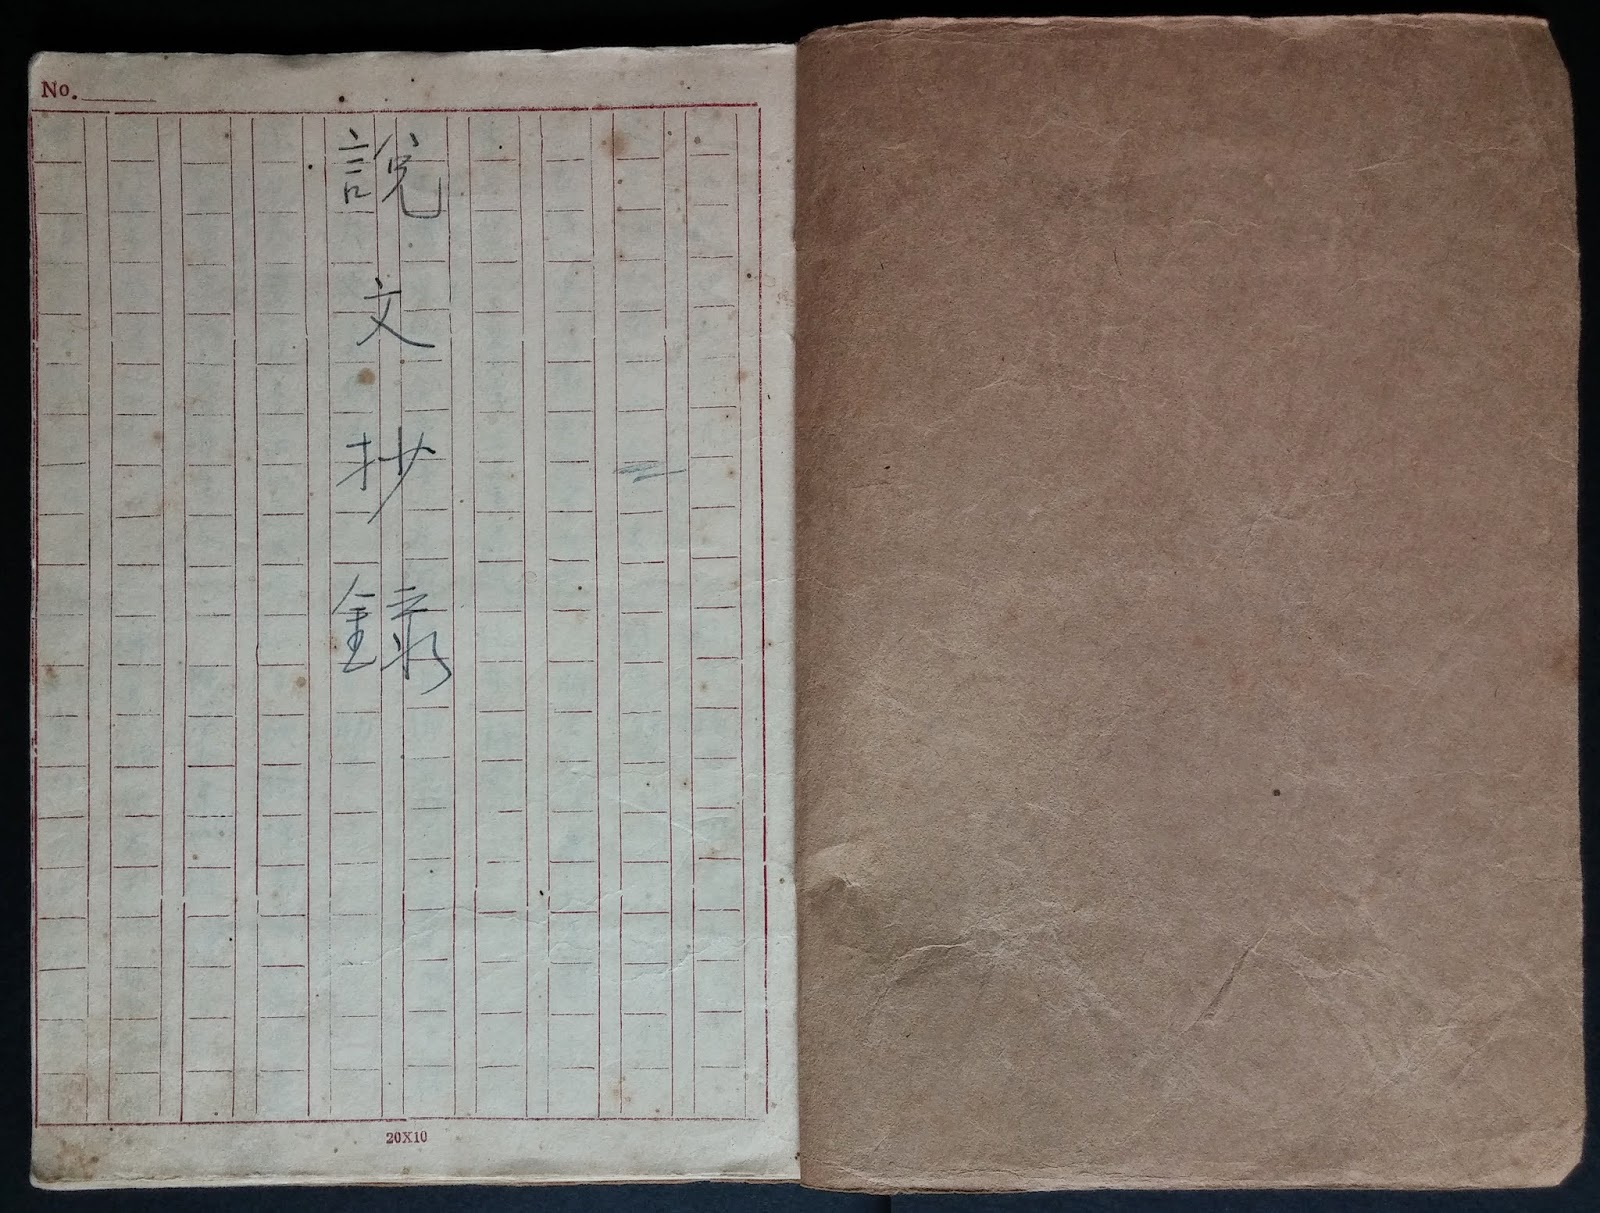 No.
說文抄錄
20X10